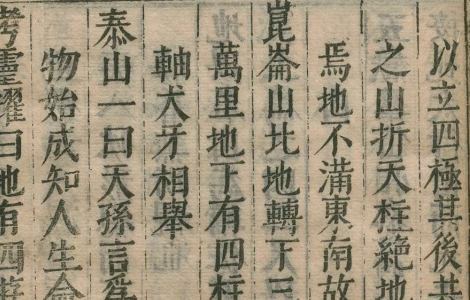 以立四極其後共
之山折天柱絶地
焉地不滿東南故
崑崙山北地轉下三
萬里地下有四柱
軸犬牙相舉
泰山一曰天孫言爲
物始成知人生命
考靈耀曰地有四游